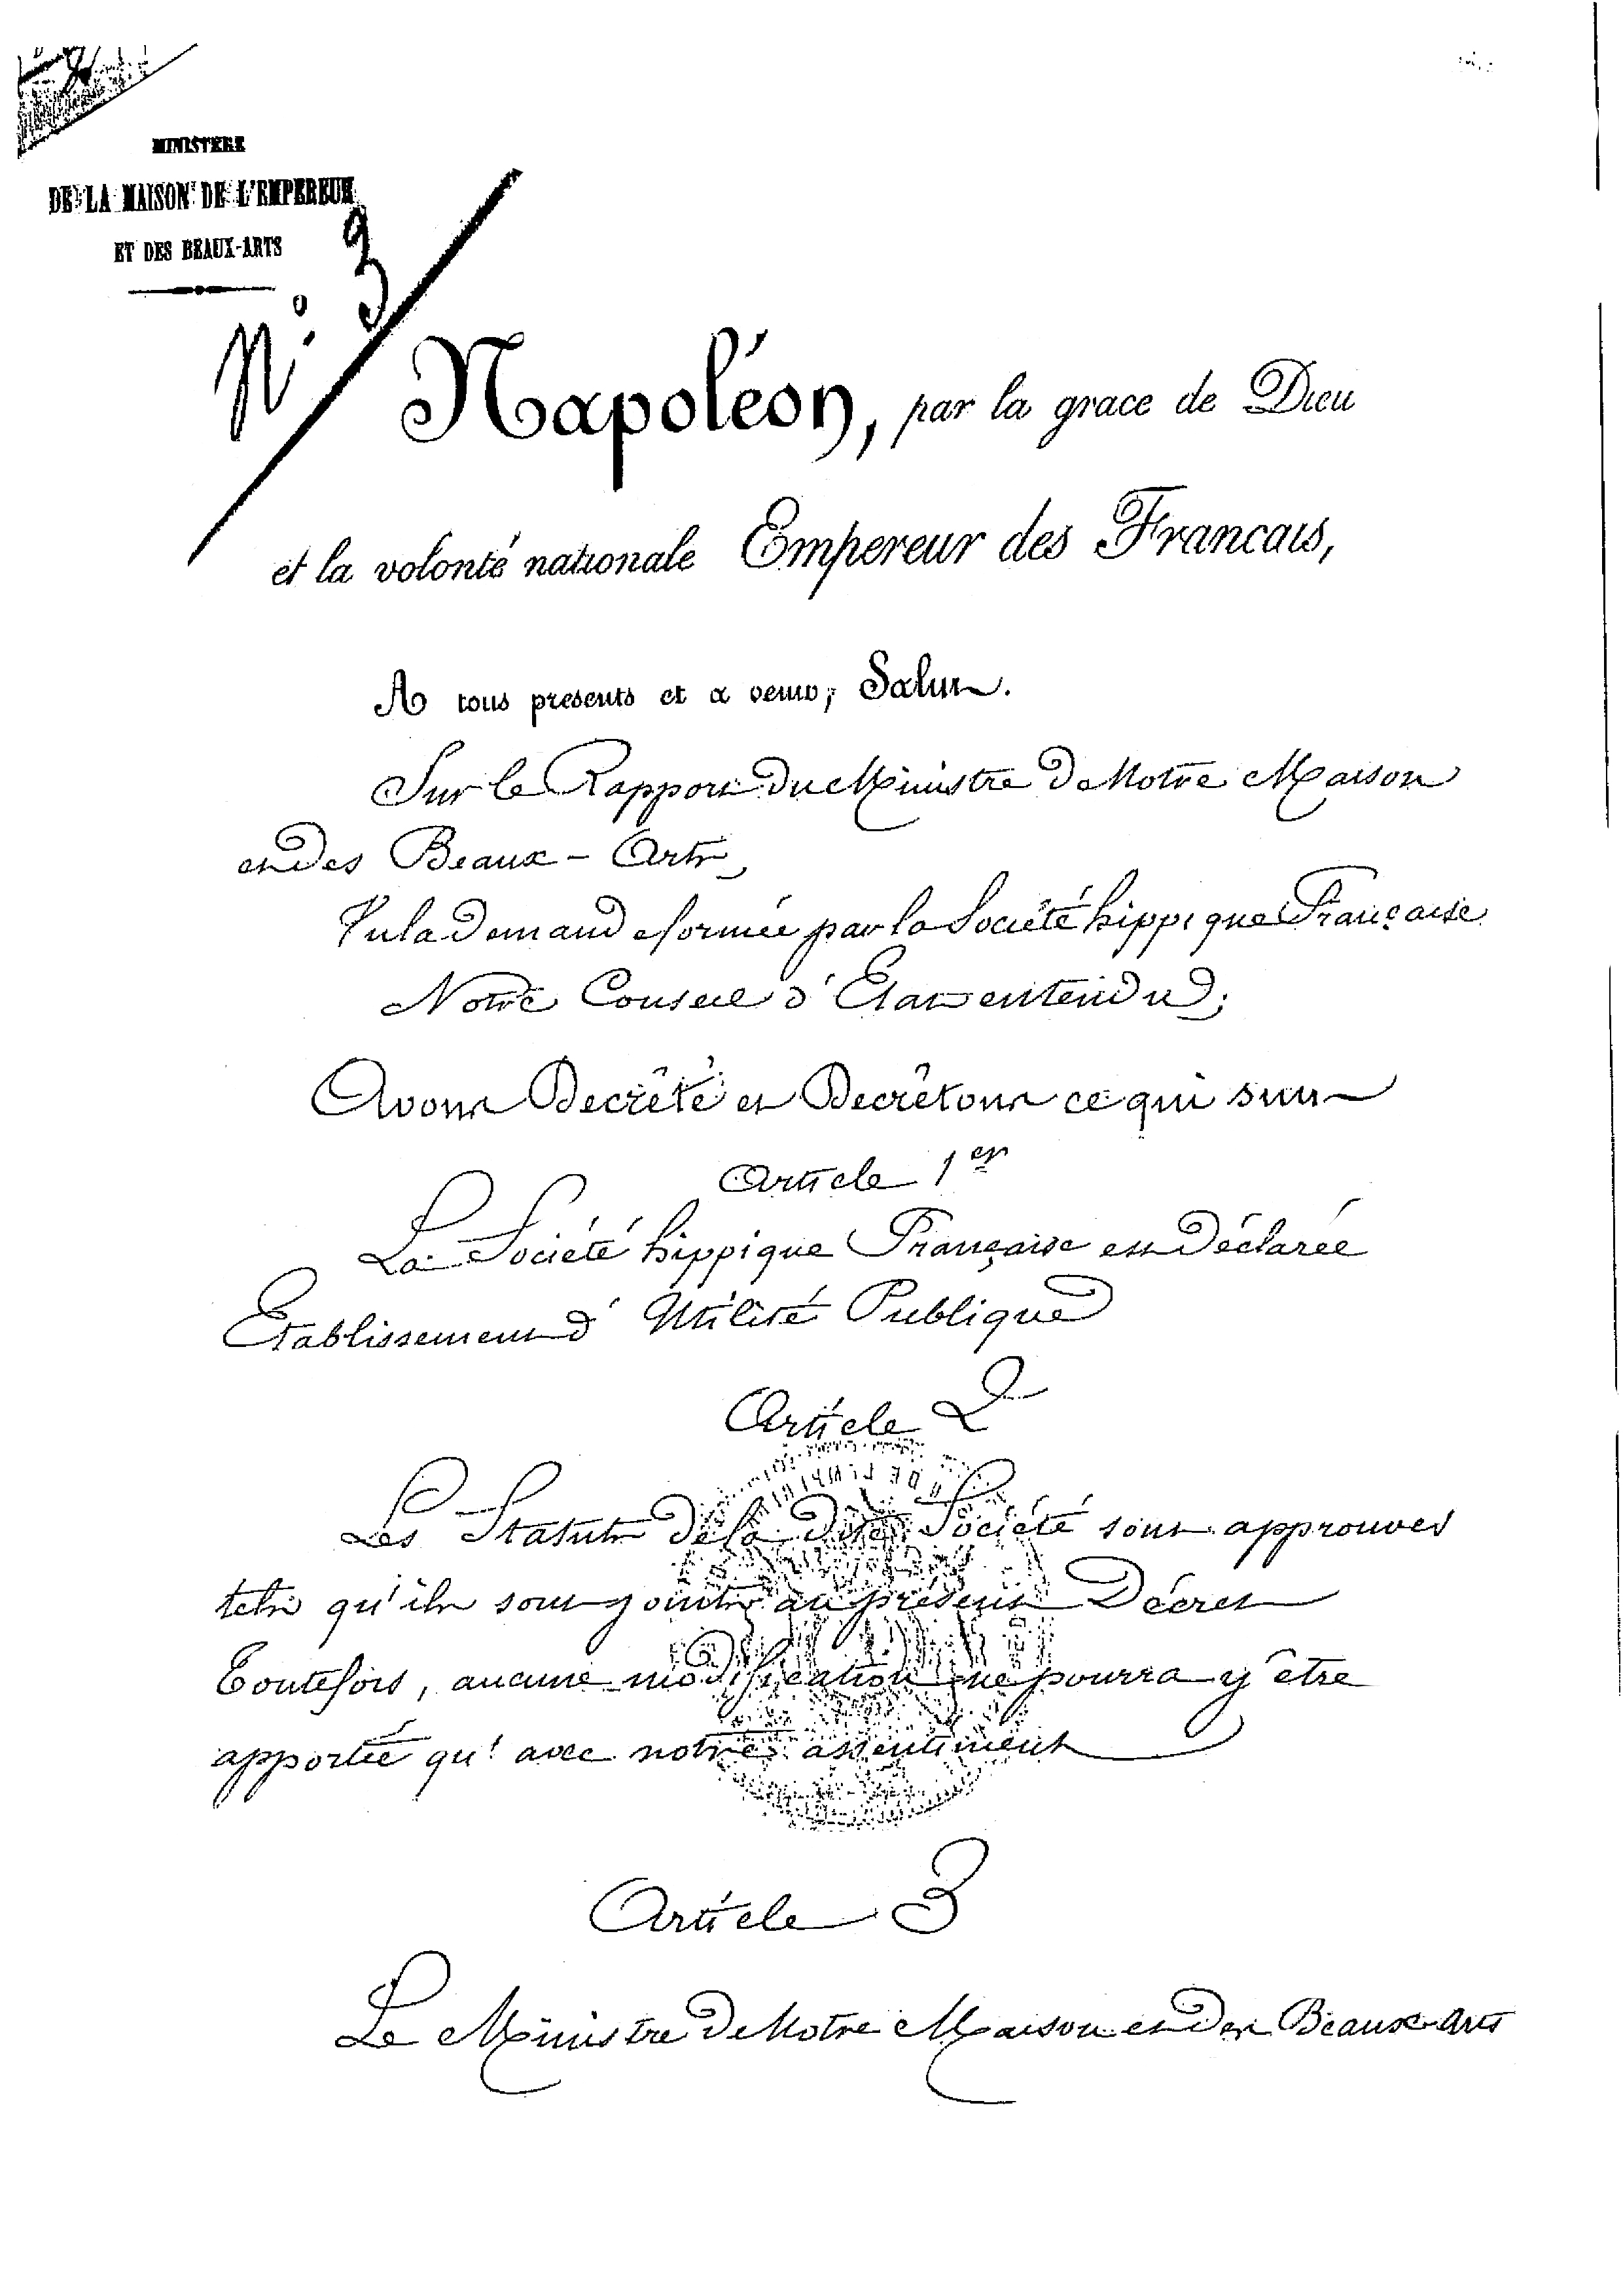 MINISTERE
DE LA MAISON DE L'EMPEREUR
ET DES BEAUX-ARTS
N° 3
Napoléon, par la grace de Dieu
et la volonté nationale Empereur des Francais,
A tous presents et a venir, Salut.
Sur le Rapport du Ministre de Notre Maison
et des Beaux-Arts,
Vu la Demande formée par la Société hippique Française
Notre Conseil d'Etat entendu;
Avons Decrêté et Decrêtons ce qui suit
Article 1er
La Société hippique Française est Déclarée
Etablissement d'Utilité Publique
Article 2
Les Statuts de la dite Société sont approuvés
tels qu'ils sont joints au présent Décret
Toutefois, aucune modification ne pourra y être
apportée qu'avec notre assentiment
Article 3
Le Ministre de Notre Maison et des Beaux-Arts